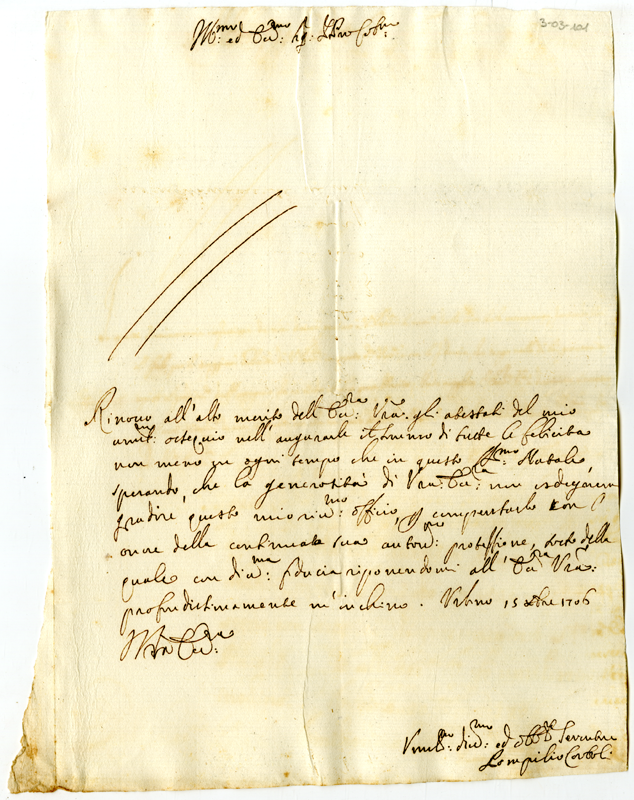 3-03-101
Ill.mo ed Ecc.mo Sig.
Rinovo all'alto merito dell'Ecc.za Vra. gli attestati del mio
umil. ossequio nell'augurarle il sommo di tutte le felicità
non meno in ogni tempo che in questo SSmo Natale
sperando, che la generosità di Vra. Ecc.za non isdegnerà
gradire questo mio riv.mo officio, e compartirle con l'
onore della continuata sua autor.ma protessione, sotto della
quale con div.ma fiducia riponendomi all'Ecc.za Vra.
profondissimamente m'inchino. Urbino 15 xbre 1706
Vra Ecc.za
Umil.mo div.mo ed obb.mo Servitore
Pompilio Corboli